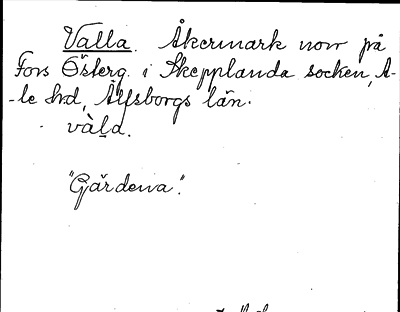 Valla. Åkermark norr på
Fors Österg. i Skepplanda socken, A-
-le hrd, Älfsborgs län.
vàla.
"Gärdena".